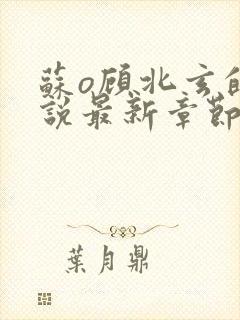 蘇o顧北玄的
說最新章節
葉月鼎